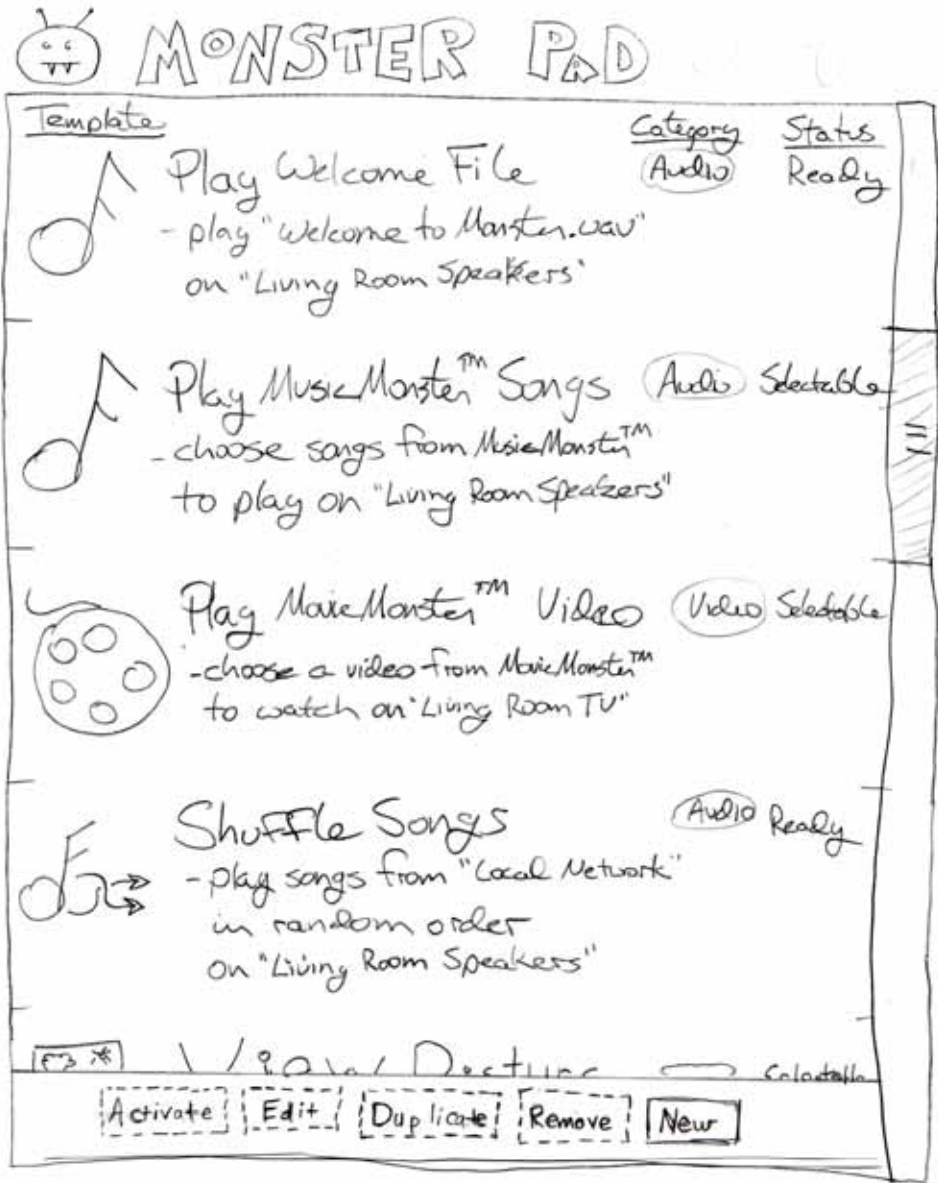 MONSTER PAD
Template Category Status
Play Welcome File Audio Ready
- play "Welcome to Monster.wav"
on "Living Room Speakers"
Play MusicMonster™ Songs Audio Selectable
- choose songs from MusicMonster™
to play on "Living Room Speakers"
Play MovieMonster™ Video Video Selectable
- choose a video from MovieMonster™
to watch on "Living Room TV"
Shuffle Songs Audio Ready
- play songs from "Local Network"
in random order
on "Living Room Speakers"
View Picture Selectable
Activate Edit Duplicate Remove New